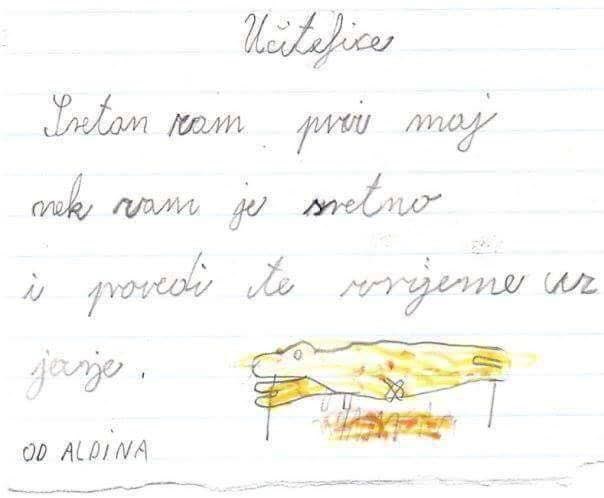 Učiteljice
Sretan vam prvi maj
nek vam je sretno
i provedi te vrijeme uz
janje.
OD ALDINA